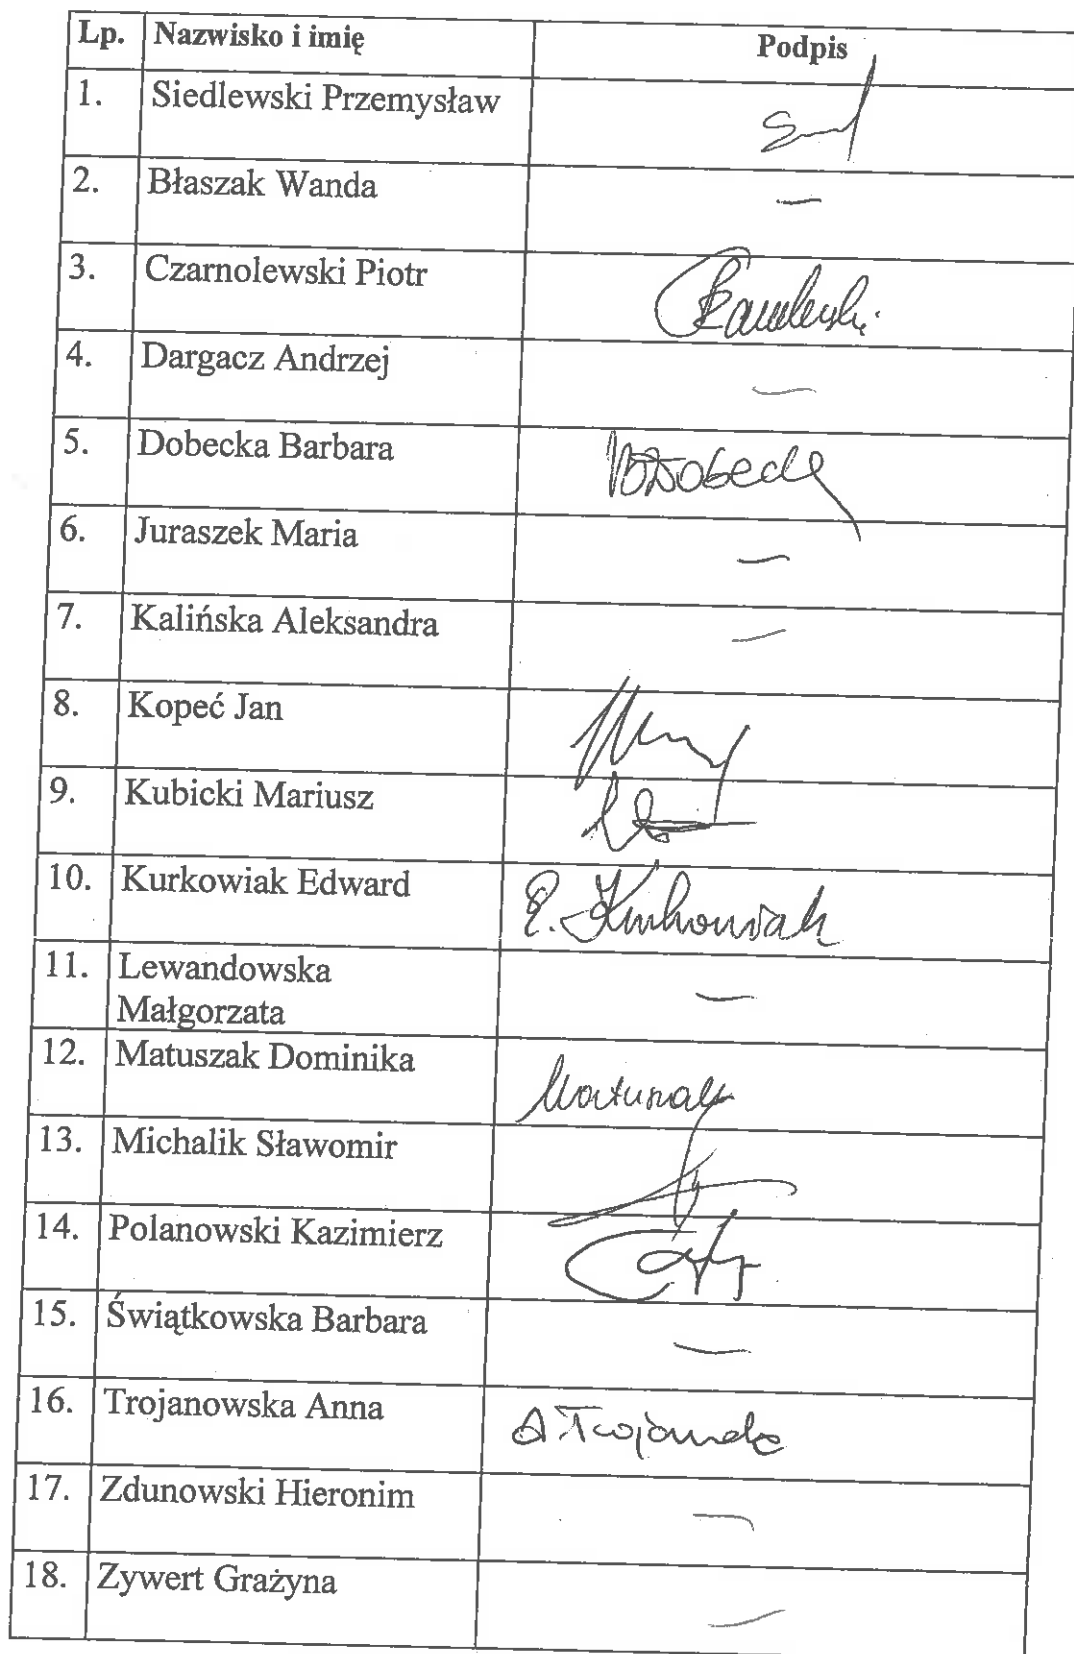 Lp. Nazwisko i imię Podpis
1. Siedlewski Przemysław
2. Błaszak Wanda —
3. Czarnolewski Piotr
4. Dargacz Andrzej —
5. Dobecka Barbara BDobecka
6. Juraszek Maria —
7. Kalińska Aleksandra —
8. Kopeć Jan
9. Kubicki Mariusz
10. Kurkowiak Edward E. Kurkowiak
11. Lewandowska
Małgorzata —
12. Matuszak Dominika Matuszak
13. Michalik Sławomir
14. Polanowski Kazimierz
15. Świątkowska Barbara —
16. Trojanowska Anna A Trojanowska
17. Zdunowski Hieronim —
18. Zywert Grażyna —